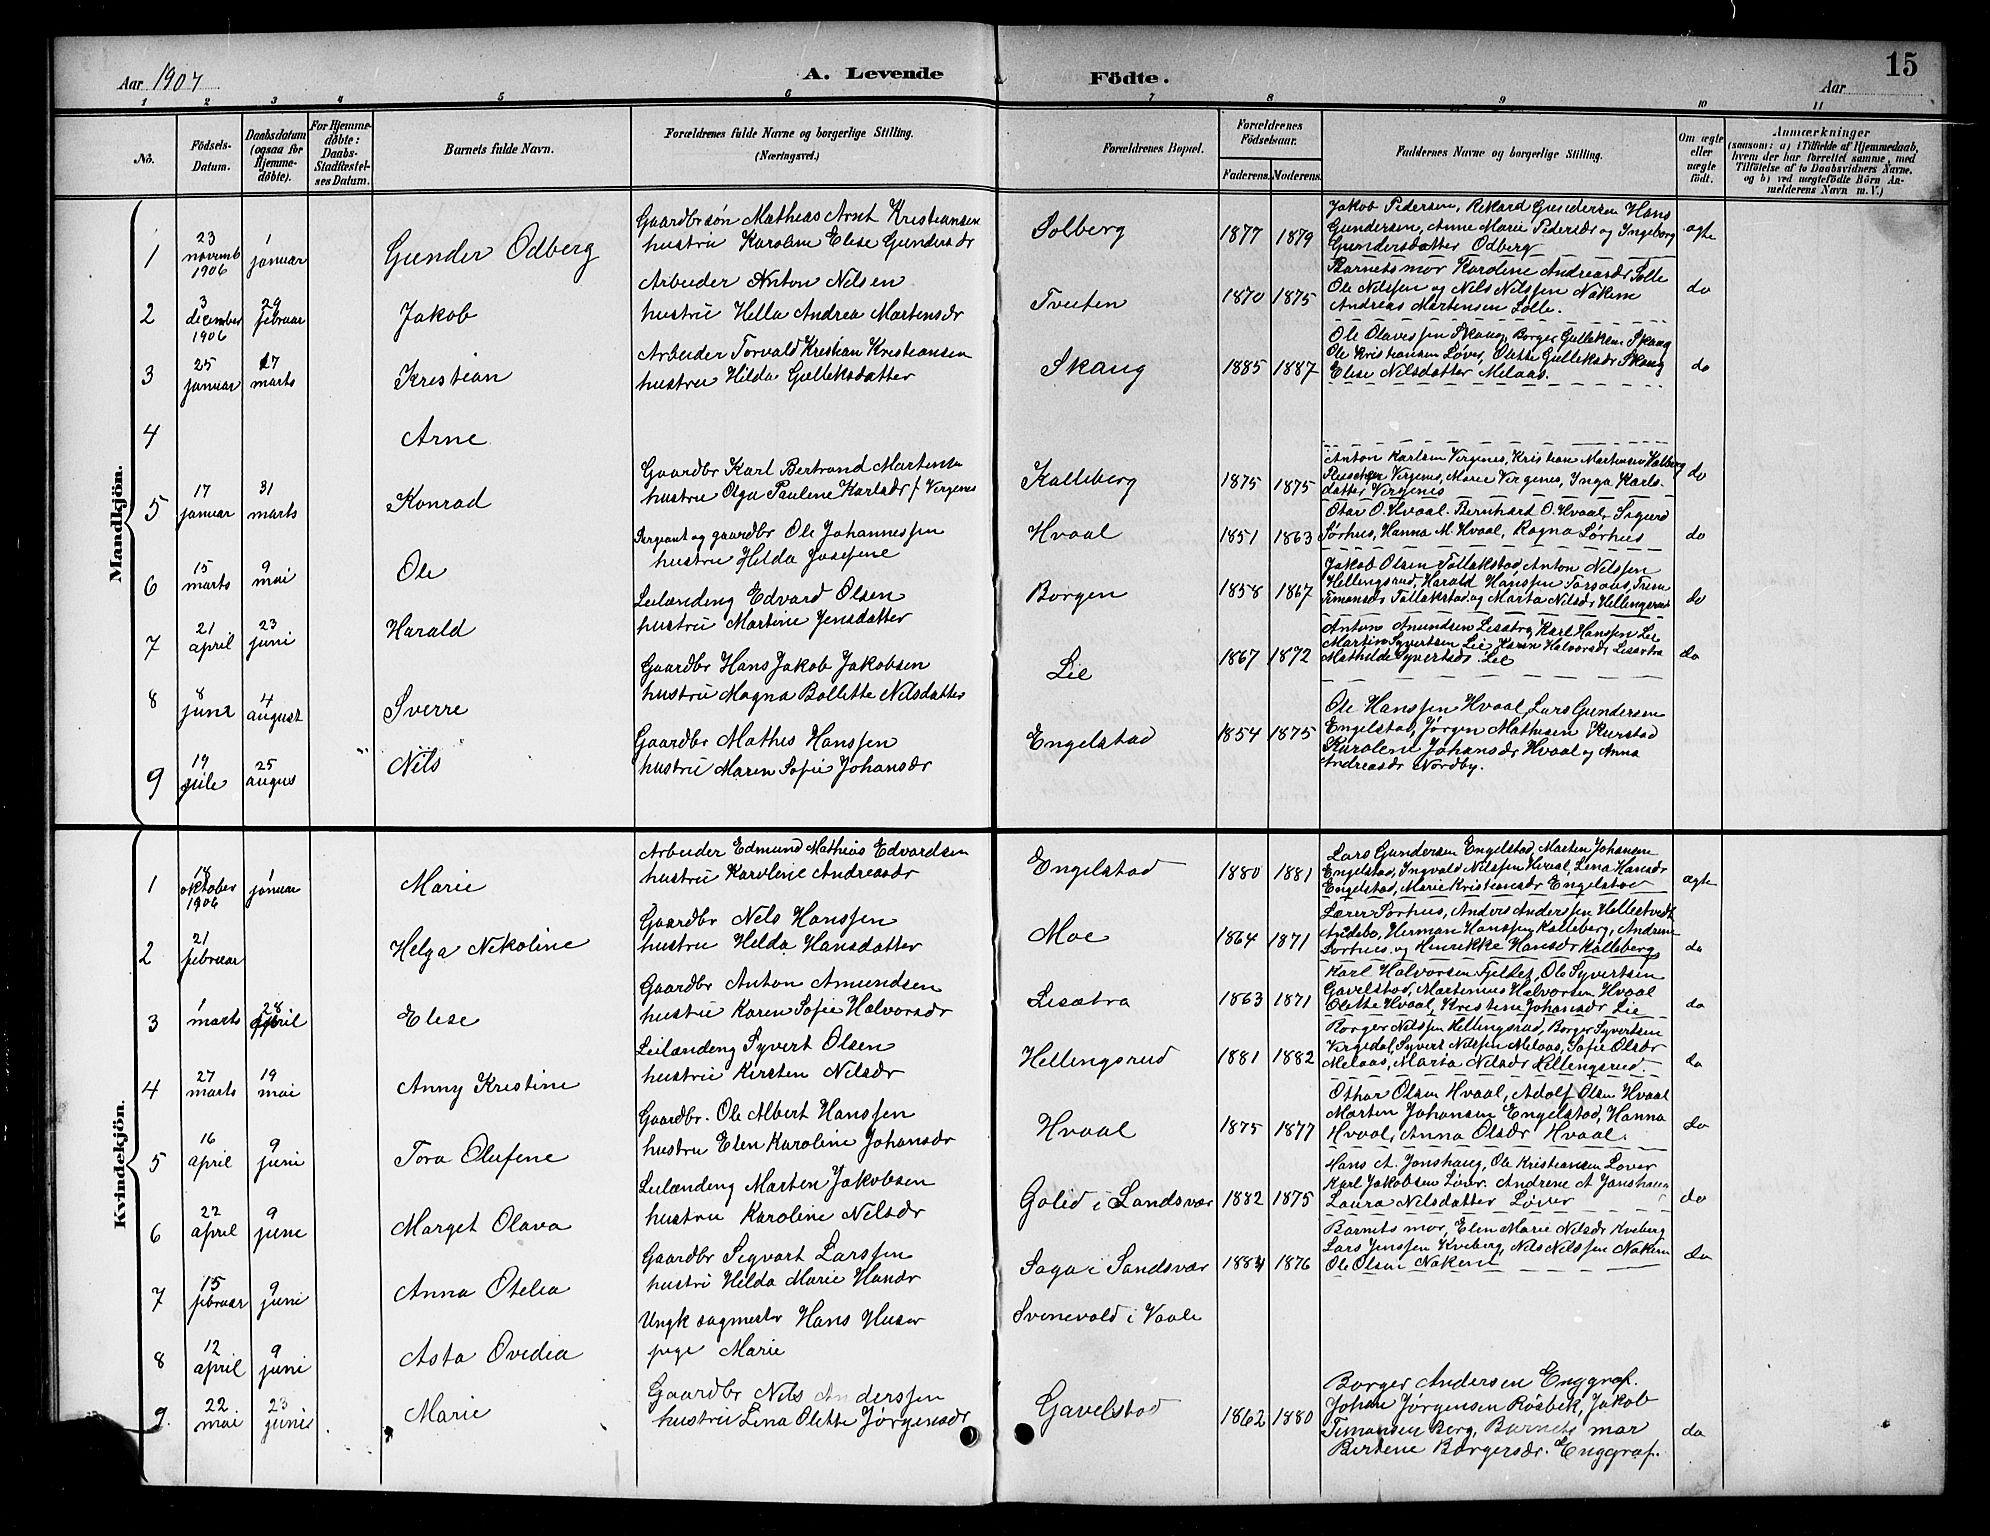 Aar 1907
A. Levende
Födte.
Aar
15
1 2 3 4 5 6 7 8 9 10 11
No.
Födsels-
Datum.
Daabsdatum
(ogsaa for
Hjemme-
döbte).
For Hjemme-
döbte:
Daabs-
Stadfæstel-
ses Datum.
Barnets fulde Navn.
Forældrenes fulde Navne og borgerlige Stilling.
(Næringsvei.)
Forældrenes Bopæl.
Forældrenes
Födselsaar.
Faderens.
Moderens.
Faddernes Navne og borgerlige Stilling.
Om ægte
eller
uægte
födt.
Anmærkninger
(saasom: a) i Tilfælde af Hjemmedaab,
hvem der har forrettet samme, med
Tilföielse af to Daabsvidners Navne.
og b) ved uægtefödte Börn An-
melderens Navn m. V.)
Mandkjön.
1
23 novemb 1906
1 januar
Gunder Odberg
Gaardbrsön Mathias Arnt Kristiansen
hustru Karoline Elise Gundersdr
Solberg
1877 1879
Jakob Pedersen, Rikard Gundersen Hans
Gundersen, Anne Marie Pedersdr og Ingeborg
Gundersdatter Odberg
ægte
2
3 december 1906
29 februar
Jakob
Arbeider Anton Nilsen
hustru Hella Andrea Martensdr
Tveiten
1870 1875
Barnets mor Karoline Andreasdr Solle
Ole Nilssen og Nils Nilssen Nakem
Andreas Martensen Lolle.
do
3
25 januar
17 marts
Kristian
Arbeider Torvald Kristian Kristiansen
hustru Hilda Gulleksdatter
Skaug
1885 1887
Ole Olavessen Skaug, Borger Gulleksen Skaug
Ole Kristiansen Løver, Olette Gulleksdr Skaug
Elise Nilsdatter Melaas.
do
4
Arne
5
17 januar
31 marts
Konrad
Gaardbr Karl Bertrand Martensen
hustru Olga Pauline Karlsdr f. Virgenes
Kalleberg
1875 1875
Anton Karlsen Virgenes, Kristian Martensen Kalberg
Virgenes, Marie Virgenes, Inga Karls-
datter Virgenes
do
6
15 marts
9 mai
Ole
Sergeant og gaardbr Ole Johannessen
hustru Hilda Josefine
Hvaal
1851 1863
Otar O. Hvaal. Bernhard O. Hvaal, Sigurd
Sørhus, Hanna M. Hvaal, Ragna Sørhus
do
7
21 april
23 juni
Harald
Leilænding Edvard Olsen
hustru Martine Jensdatter
Borgen
1858 1867
Jakob Olsen Tollakstad, Anton Nilssen
Hellingsrud, Harald Hanssen
Timansdr Tollakstad og Marta Nilsdr Hellingsrud
do
8
8 juni
4 august
Sverre
Gaardbr Hans Jakob Jakobsen
hustru Magna Bollette Nilsdatter
Lie
1867 1872
Anton Amundsen Lisætra, Karl Hanssen Lie
Martin Syvertsen Lie, Karen Halvorsdr Lisætra
Mathilde Syvertsdr Lie
do
9
19 juli
25 augus
Nils
Gaardbr Mathis Hanssen
hustru Maren Sofie Johansdr
Engelstad
1854 1875
Ole Hanssen Hvaal, Lars Gundersen
Engelstad, Jørgen Mathisen Rustad
Karoline Johansdr Hvaal og Anna
Andreasdr Nordby.
Kvindekjön.
1
18 oktober 1906
1 januar
Marie
Arbeider Edmund Mathias Edvardsen
hustru Karoline Andreasdr
Engelstad
1880 1881
Lars Gundersen Engelstad, Marten Johansen
Engelstad, Ingvald Nilssen Hvaal, Lina Hansdr
Engelstad, Marie Kristiansdr Engelstad
ægte
2
21 februar
Helga Nikoline
Gaardbr Nils Hanssen
hustru Hilda Hansdatter
Moe
1864 1871
Lærer Sørhus, Anders Anderssen Hellestvedt
Andebo, Herman Hanssen Kalleberg, Andrine
Sørhus, og Henrikke Hansdr Kalleberg
do
3
1 marts
28 april
Elise
Gaardbr Anton Amundsen
hustru Karen Sofie Halvorsdr
Lisætra
1863 1871
Karl Halvorsen Fjeldet, Ole Syvertsen
Gavelstad, Martinius Halvorsen Hvaal
Olette Hvaal, Kristine Johansdr Lie
do
4
27 marts
19 mai
Anny Kristine
Leilænding Syvert Olsen
hustru Kirsten Nilsdr
Hellingsrud
1881 1882
Borger Nilssen Hellingsrud, Borger Syvertsen
Virgedal, Syvert Nilssen Melaas, Sofie Olsdr
Melaas, Maria Nilsdr Hellingsrud.
do
5
16 april
9 juni
Tora Olufine
Gaardbr. Ole Albert Hanssen
hustru Elen Karoline Johansdr
Hvaal
1875 1877
Othar Olsen Hvaal, Adolf Olsen Hvaal
Marten Johansen Engelstad, Hanna
Hvaal, Anna Olsdr Hvaal.
do
6
22 april
9 june
Marget Olava
Leilænding Marten Jakobsen
hustru Karoline Nilsdr
Goled i Sandsvær
1882 1875
Hans A. Jonshaug, Ole Kristiansen Løver
Karl Jakobsen Løver. Andrine A Jonshaug
Laura Nilsdatter Løver
do
7
15 februar
9 juni
Anna Otelia
Gaardbr Sigvart Larssen
hustru Hilda Marie Hansdr
Saga i Sandsvær
1884 1876
Barnets mor, Elen Marie Nilsdr Kveberg
Lars Jenssen Kveberg, Nils Nilssen Nakem
Ole Olsen Nakem
do
8
12 april
9 juni
Asta Ovedia
Ungk sagmester Hans Huser
pige Marie
Svinevold i Vaale
9.
22 mai
23 juni
Marie
Gaardbr Nils Anderssen
hustru Lina Olette Jørgensdr
Gavelstad
1862 1880
Borger Andersen Enggraf.
Johan Jørgensen Røsbek, Jakob
Timansen Berg, Barnets mor
Bertine Borgersdr. Enggraf.
do